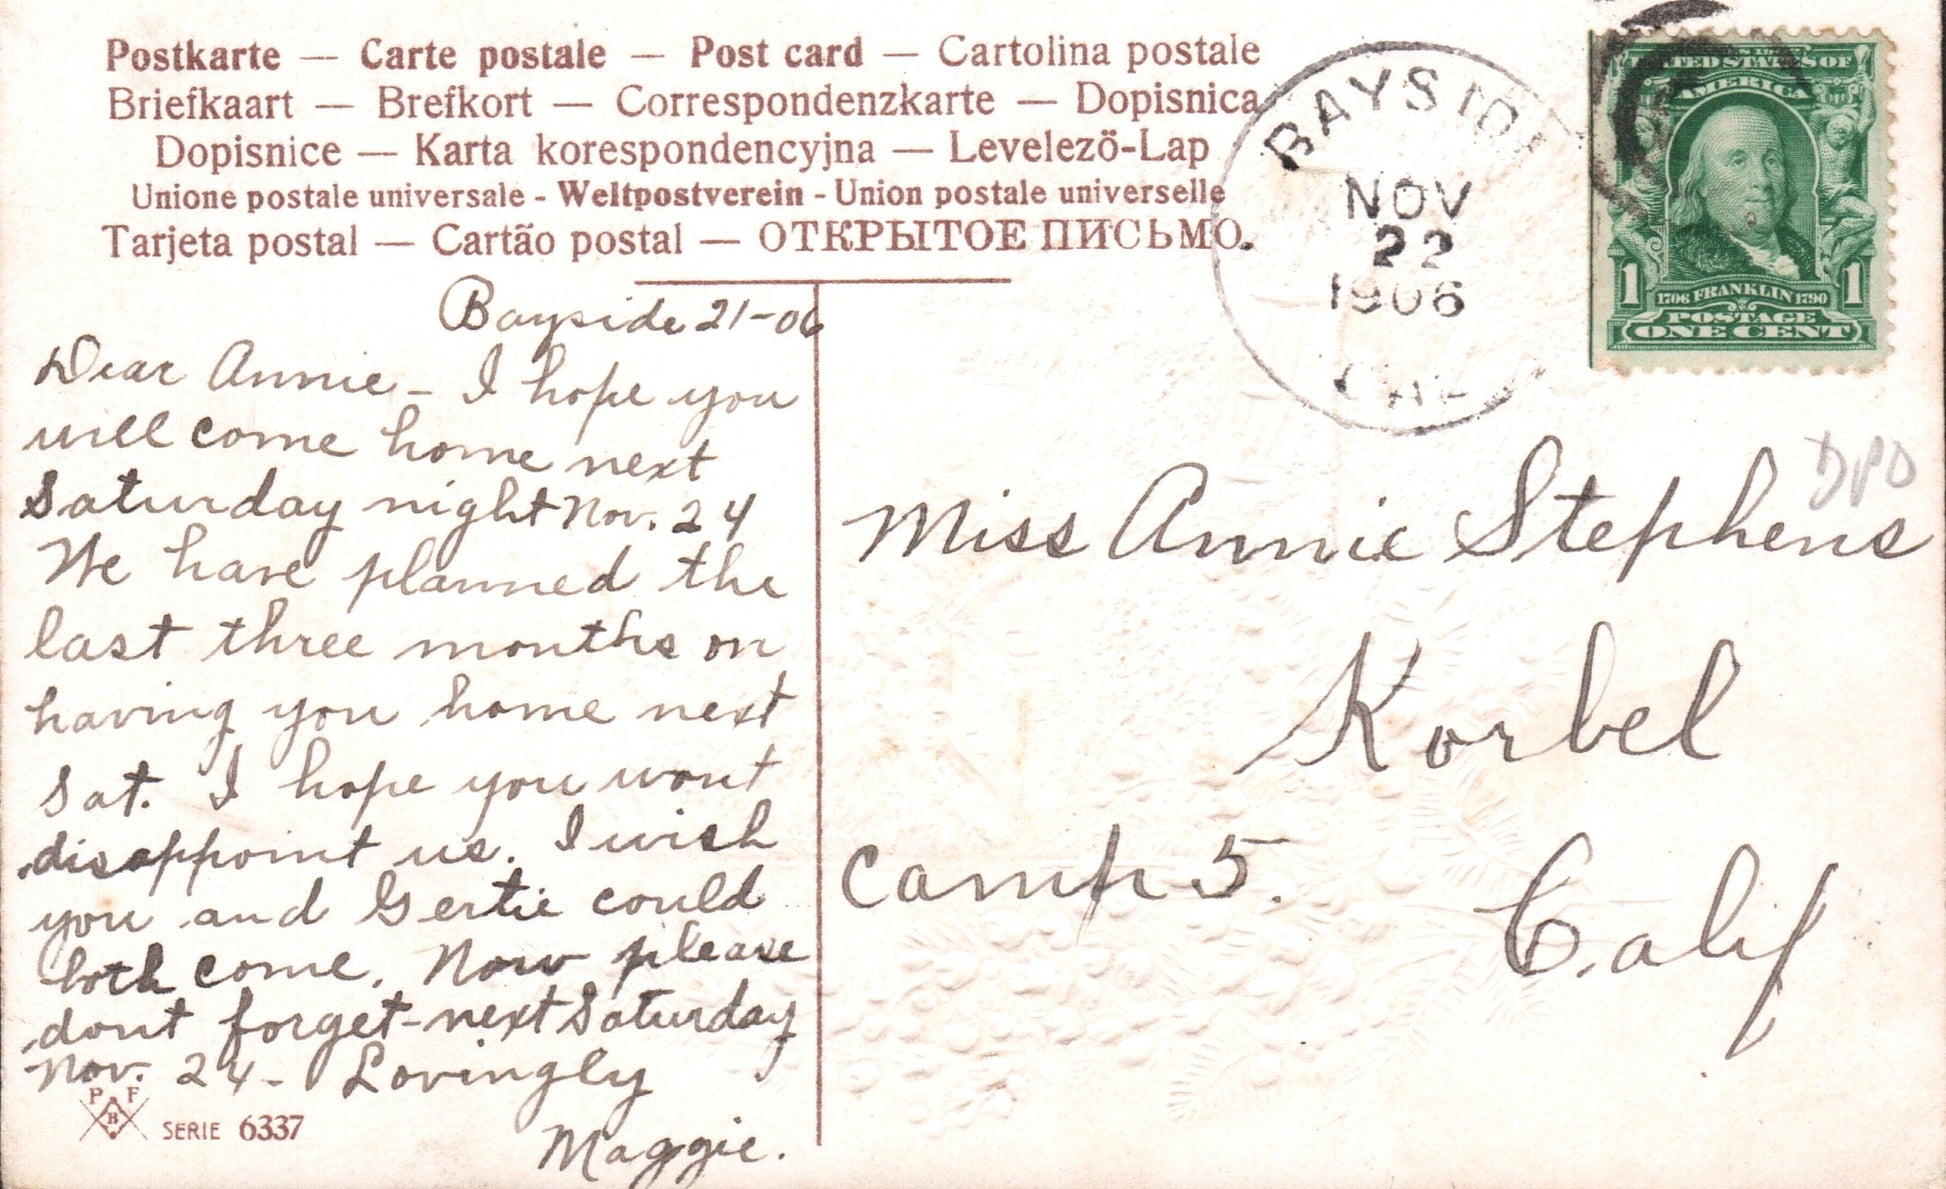 Postkarte — Carte postale — Post card — Cartolina postale
Briefkaart — Brefkort — Correspondenzkarte — Dopisnica
Dopisnice — Karta korespondencyjna — Levelezö-Lap
Unione postale universale - Weltpostverein - Union postale universelle
Tarjeta postal — Cartão postal — ОТКРЫТОЕ ПИСЬМО.
BAYSIDE
NOV
22
1906
CAL
UNITED STATES OF
AMERICA
1 1
1706 FRANKLIN 1790
POSTAGE
ONE CENT
Bayside 21-06
Dear Annie - I hope you
will come home next
Saturday night Nov. 24
We have planned the
last three months on
having you home next
Sat. I hope you wont
disappoint us. I wish
you and Gertie could
both come. Now please
dont forget - next Saturday
Nov. 24 - Lovingly
Maggie.
DPO
Miss Annie Stephens
Korbel
Camp 5.
Calif
P F
B
SERIE 6337